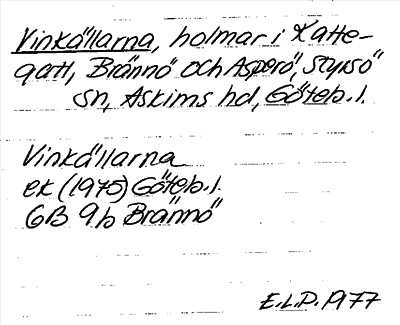 Vinkällarna, holmar i Katte-
gatt, Brännö och Asperö, Styrsö
sn, Askims hd, Göteb. l.
Vinkällarna
ek (1975) Göteb. l.
GB 9b Brännö
E.L.P. 1977